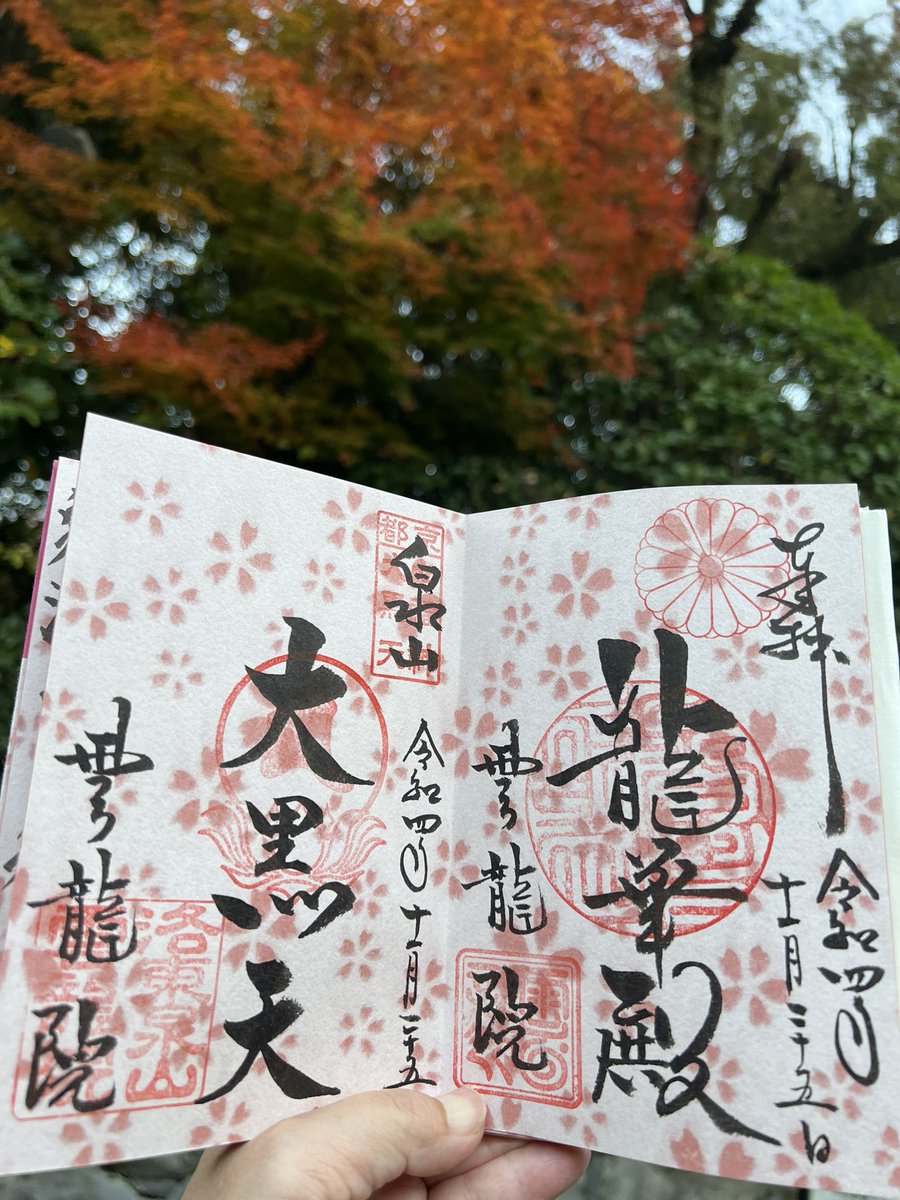 奉拝
令和四年
十一月二十五日
龍華殿
雲龍院
泉山
令和四年
十一月二十五
大黒天
雲龍院
洛東泉山